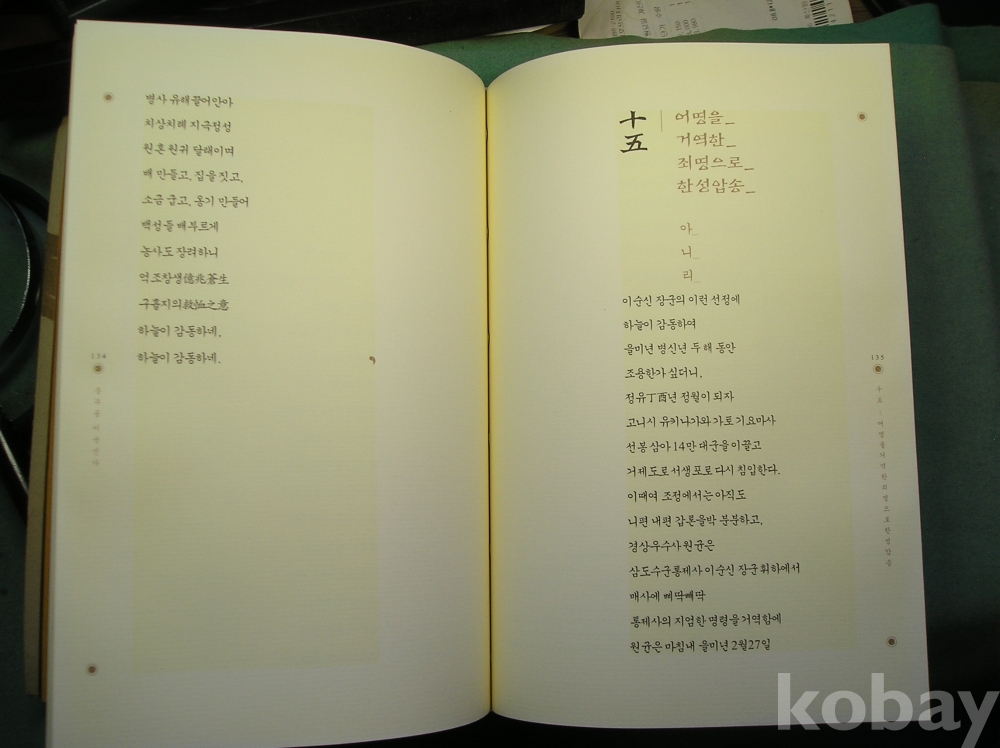 병사 유해 끌어안아
치상치례 지극정성
원혼 원귀 달래이며
배 만들고, 집을 짓고,
소금 굽고, 옹기 만들어
백성들 배부르게
농사도 장려하니
억조창생億兆蒼生
구휼지의救恤之意
하늘이 감동하네.
하늘이 감동하네.
134
十五
어명을_
거역한_
죄명으로_
한성압송_
아_
니_
리_
이순신 장군의 이런 선정에
하늘이 감동하여
을미년 병신년 두 해 동안
조용한가 싶더니,
정유丁酉년 정월이 되자
고니시 유키나가와 가토 기요마사
선봉 삼아 14만 대군을 이끌고
거제도로 서생포로 다시 침입한다.
이때여 조정에서는 아직도
니편 내편 갑론을박 분분하고,
경상우수사 원균은
삼도수군통제사 이순신 장군 휘하에서
매사에 삐딱빼딱
통제사의 지엄한 명령을 거역함에
원균은 마침내 을미년 2월 27일
135
十五_어명을거역한죄명으로한성압송
kobay